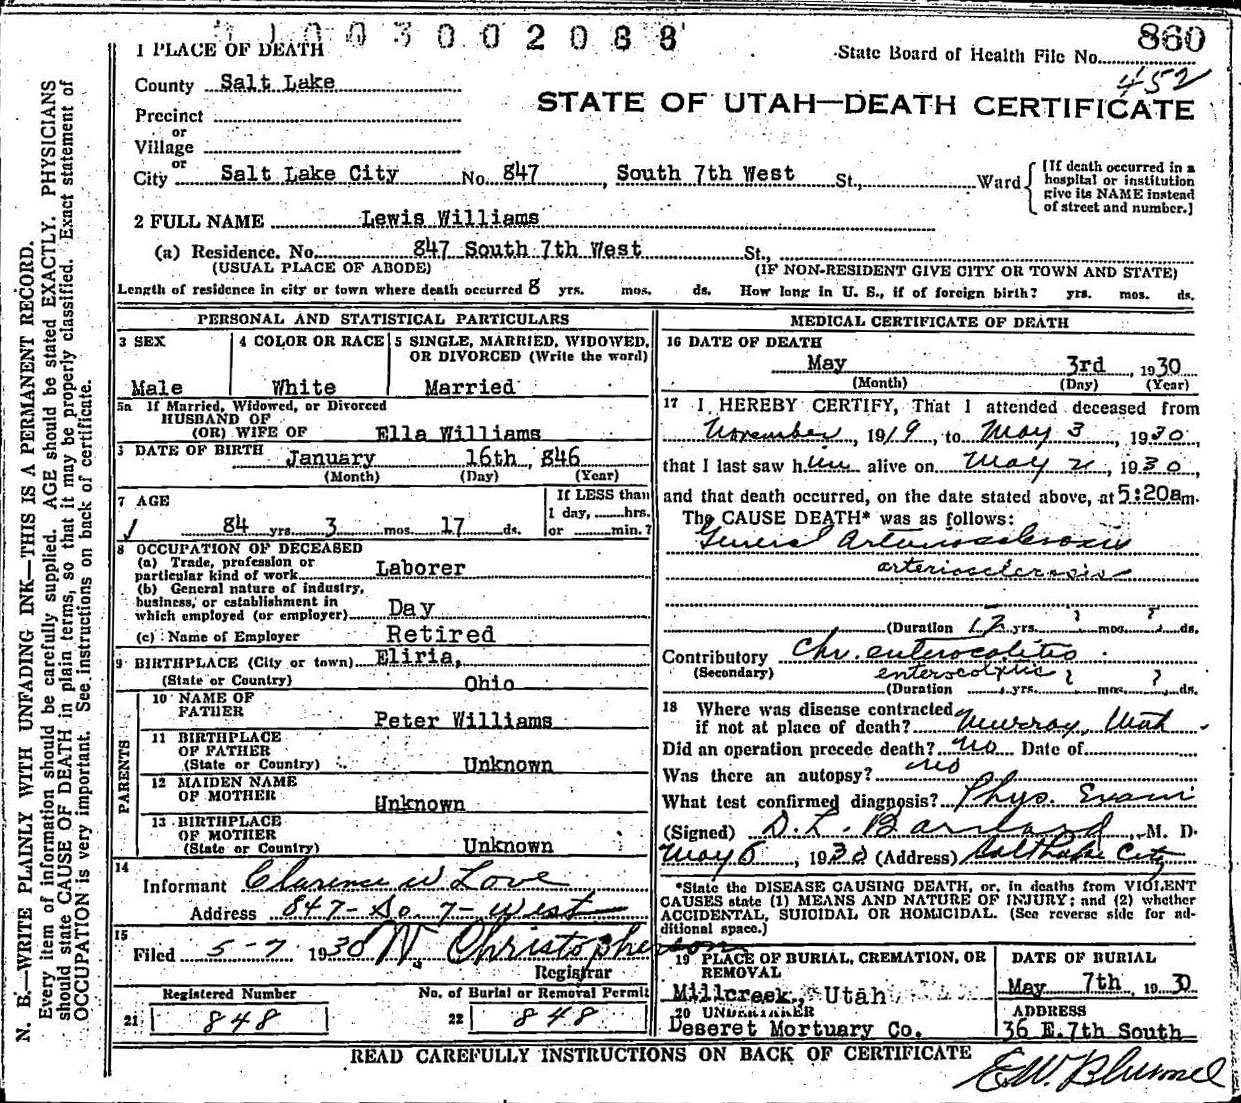 1003002088
1 PLACE OF DEATH
State Board of Health File No. 860
452
County Salt Lake
STATE OF UTAH—DEATH CERTIFICATE
Precinct
or
Village
or
City Salt Lake City No. 847, South 7th West St., Ward
[If death occurred in a
hospital or institution
give its NAME instead
of street and number.]
2 FULL NAME Lewis Williams
(a) Residence. No. 847 South 7th West St.,
(USUAL PLACE OF ABODE) (IF NON-RESIDENT GIVE CITY OR TOWN AND STATE)
Length of residence in city or town where death occurred 8 yrs. mos. ds. How long in U. S., if of foreign birth? yrs. mos. ds.
PERSONAL AND STATISTICAL PARTICULARS
3 SEX
Male
4 COLOR OR RACE
White
5 SINGLE, MARRIED, WIDOWED,
OR DIVORCED (Write the word)
Married
5a If Married, Widowed, or Divorced
HUSBAND OF
(OR) WIFE OF Ella Williams
DATE OF BIRTH January 16th, 846
(Month) (Day) (Year)
7 AGE
84 yrs. 3 mos. 17 ds.
If LESS than
1 day, hrs.
or min.?
8 OCCUPATION OF DECEASED
(a) Trade, profession or
particular kind of work Laborer
(b) General nature of industry,
business, or establishment in
which employed (or employer) Day
(c) Name of Employer Retired
9 BIRTHPLACE (City or town) Eliria,
(State or Country) Ohio
PARENTS
10 NAME OF
FATHER Peter Williams
11 BIRTHPLACE
OF FATHER
(State or Country) Unknown
12 MAIDEN NAME
OF MOTHER Unknown
13 BIRTHPLACE
OF MOTHER
(State or Country) Unknown
14
Informant Clarence W Love
Address 847- So. 7- West
15
Filed 5-7 1930 N. Christopherson
Registrar
Registered Number
21 848
No. of Burial or Removal Permit
22 848
MEDICAL CERTIFICATE OF DEATH
16 DATE OF DEATH
May 3rd, 1930
(Month) (Day) (Year)
17 I HEREBY CERTIFY, That I attended deceased from
November, 1919, to May 3, 1930,
that I last saw him alive on May 2, 1930,
and that death occurred, on the date stated above, at 5:20am.
The CAUSE DEATH* was as follows:
General Arteriosclerosis
arteriosclerosis
(Duration 12 yrs. ? mos. ? ds.
Contributory Chr. enterocolitis
(Secondary) enterocolitis
(Duration yrs. ? mos. ? ds.
18 Where was disease contracted
if not at place of death? Murray, Utah
Did an operation precede death? no Date of
Was there an autopsy? no
What test confirmed diagnosis? Phys. Exam
(Signed) D. L. Barnard, M. D.
May 6, 1930 (Address) Salt Lake City
*State the DISEASE CAUSING DEATH, or, in deaths from VIOLENT
CAUSES state (1) MEANS AND NATURE OF INJURY; and (2) whether
ACCIDENTAL, SUICIDAL OR HOMICIDAL. (See reverse side for ad-
ditional space.)
19 PLACE OF BURIAL, CREMATION, OR
REMOVAL
Millcreek, Utah
DATE OF BURIAL
May 7th, 1930
20 UNDERTAKER
Deseret Mortuary Co.
ADDRESS
36 E. 7th South
READ CAREFULLY INSTRUCTIONS ON BACK OF CERTIFICATE
E.W. Blummel
N. B.—WRITE PLAINLY WITH UNFADING INK—THIS IS A PERMANENT RECORD.
Every item of information should be carefully supplied. AGE should be stated EXACTLY. PHYSICIANS
should state CAUSE OF DEATH in plain terms, so that it may be properly classified. Exact statement of
OCCUPATION is very important. See instructions on back of certificate.